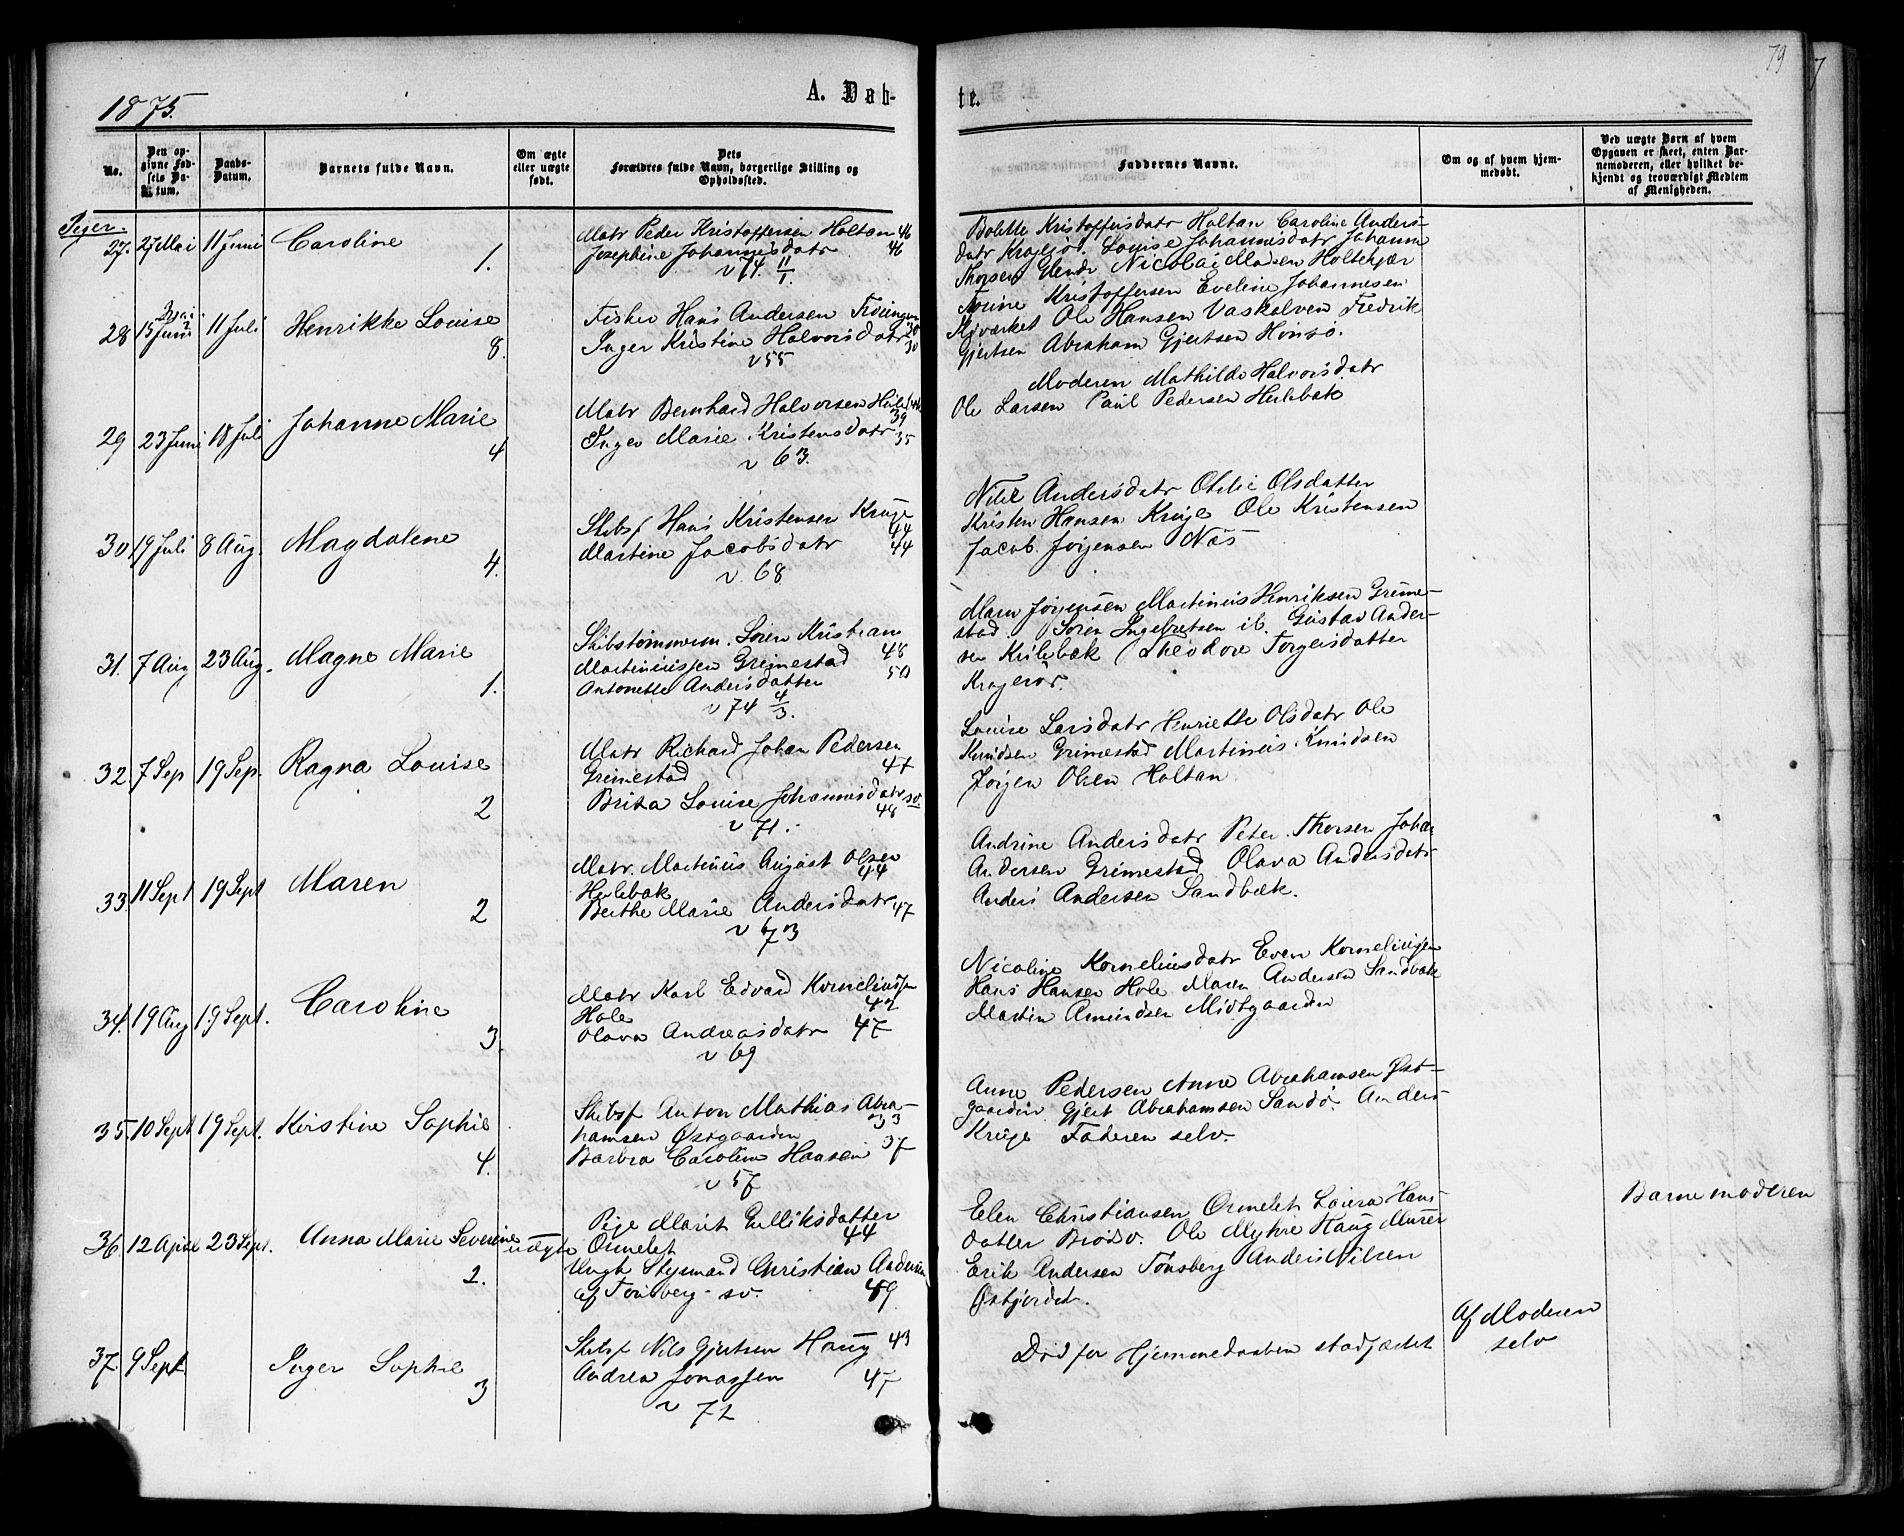 79
1875.
A. Døb-
te.
No.
Den op-
givne Fød-
sels Da-
tum.
Daabs-
Datum.
Barnets fulde Navn.
Om ægte
eller uægte
født.
Dets
Forældres fulde Navn, borgerlige Stilling og
Opholdssted.
Faddernes Navne.
Om og af hvem hjem-
medøbt.
Ved uægte Børn af hvem
Opgaven er skeet, enten Bar-
nemoderen, eller hvilket be-
kjendt og troværdigt Medlem
af Menigheden.
Piger.
27. 27 Mai 11 Juni Caroline 1.
Matr Peder Kristoffersen Holtan 46
Josephine Johannisdatr 46
v 74. 11/1
Bolette Kristoffersdatr Holtan Caroline Anders-
datr Louise Johannisdatr Johann
Thorsen Nicolai Madsen Holtekjær
28 15 Juni 11 Juli Henrikke Louise 8.
Fisker Hans Andersen 30
Inger Kristine Halvorsdatr 30
v 55
Kristoffersen Eveline Johannesen
Ole Hansen Vaskalven Fredrik
Gjertsen Abraham Gjertsen
29 23 Juni 18 Juli Johanne Marie 4
Matr Bernhard Halvorsen 39
Inger Marie Kristensdatr 35
v 63.
Moderen Mathilde Halvorsdatr
Ole Larsen Paul Pedersen Hulebak
30 19 Juli 8 Aug. Magdalene 4.
Skibsf Hans Kristensen Kruge 44
Martine Jacobsdatr 44
v. 68
Andersdatr Otilie Olsdatter
Kristen Hansen Kruge Ole Kristensen
Jacob Jørgensen Næs
31. 7 Aug 23 Aug. Magne Marie 1.
Skibstømmerm. Søren Kristian
Martiniussen Grimestad 48
Antonette Andersdatter 50
v 74 4/3.
Maren Jørgensen Martinius Henriksen Grime-
stad. Søren Ingebretsen ib. Gustav Ander-
sen Hulebæk Theodore Torgersdatter
Kragerø.
32. 7 Sep 19 Sep. Ragna Louise 2
Matr Richard Johan Pedersen
Grimestad 47
Brita Louise Johannisdatr sv.
48
v 71.
Louise Larsdatr Henriette Olsdatr Ole
Knudsen Grimestad Martinius Knudsen
Jørgen Olsen Holtan
33. 11 Sept 19 Sept Maren 2
Matr. Martinius August Olsen
Hulebak 44
Berthe Marie Andersdatr 47
v 73
Andrine Andersdatr Peter Thorsen Johan
Andersen Grimestad Olava Andersdatr
Anders Andersen Sandbæk.
34. 19 Aug 19 Sept. Caroline 3.
Matr Karl Edvard Korneliussen
Hole 42
Olava Andreasdatr 47
v 69
Nicoline Korneliusdatr Even Korneliussen
Hans Hansen Hole Maren Andersen Sandbæk
Martin Amundsen Midtgaarden
35. 10 Sept 19 Sept. Kirstine Sophie 4.
Skibsf Anton Mathias Abra-
hamsen Østgaarden 33
Barbra Caroline Hansen 37
v 57
Anne Pedersen Anne Abrahamsen Øst-
gaarden Gjert Abrahamsen Sandø. Anders
Kruge Faderen selv.
36. 12 April 23 Sept. Anna Marie Severine uægte
2.
Pige Marit Gulliksdatter
Ormelet 44
Ungk Styrmand Christian Andersen
af Tønsberg sv. 49
Elen Christiansen Ormelet Laura Hans-
datter Ole Myhre Haug Murer
Erik Andersen Tønsberg Anders Nilsen
Barnemoderen
37. 9 Sept. Inger Sophie 3
Skibsf Nils Gjertsen Haug 43
Andrea Jonassen 47
v 72
Død før Hjemmedaaben stadfæstet
Af Moderen
selv